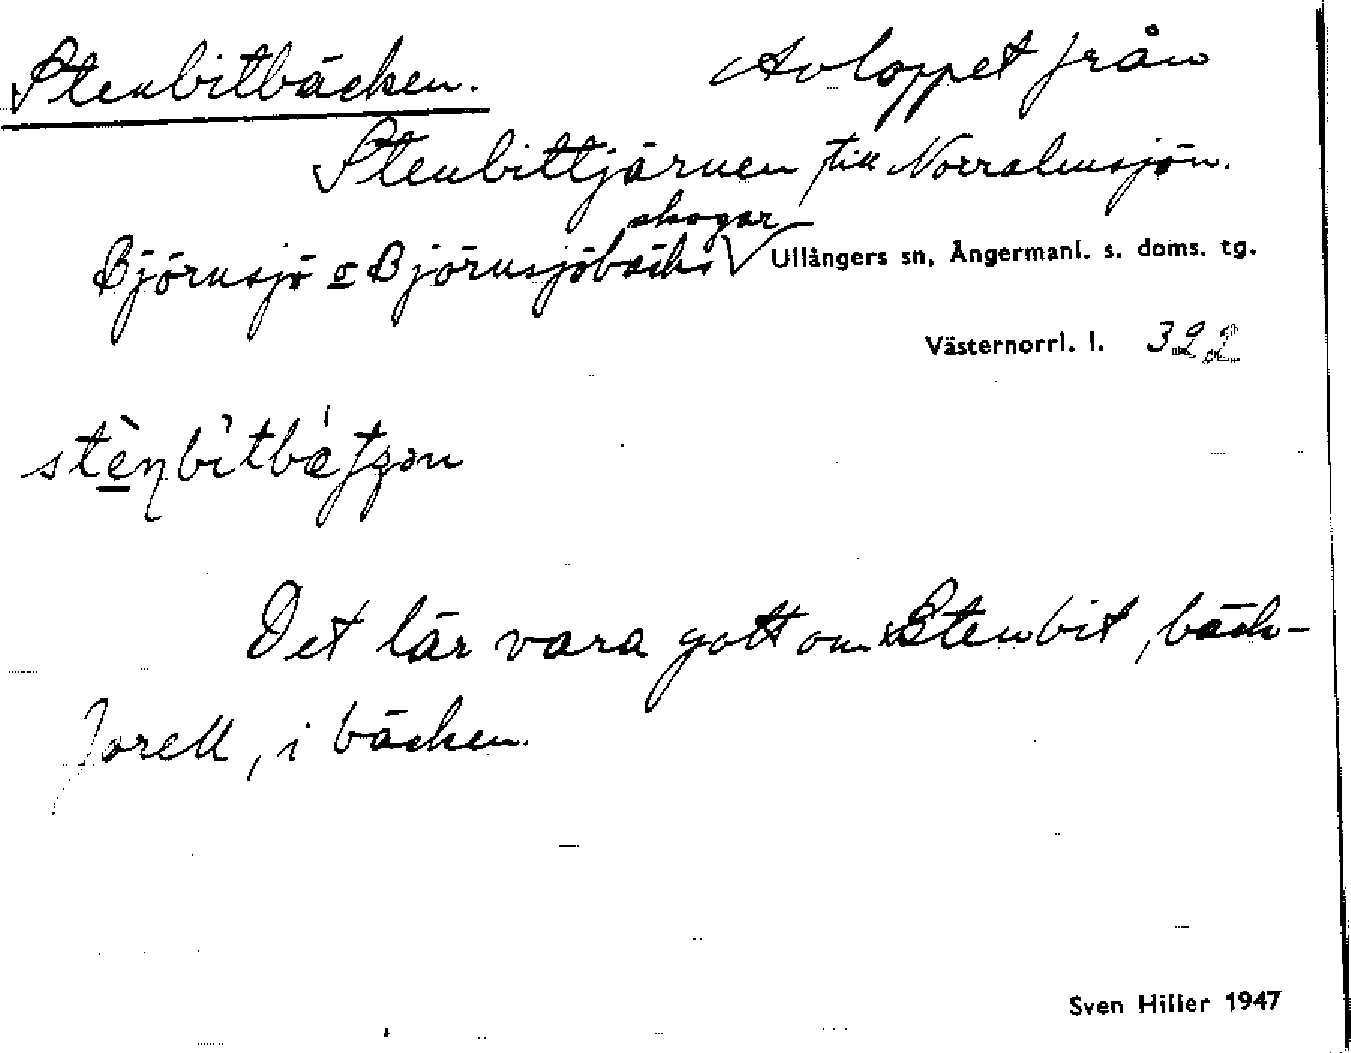 Stenbitbäcken. Avloppet från
Stenbittjärnen till Norralmsjön.
skogar
Björnsjö o Björnsjöbäcks √ Ullångers sn, Ångermanl. s. doms. tg.
Västernorrl. l. 322
Det lär vara gott om Stenbit, bäck-
forell, i bäcken.
Sven Hiller 1947